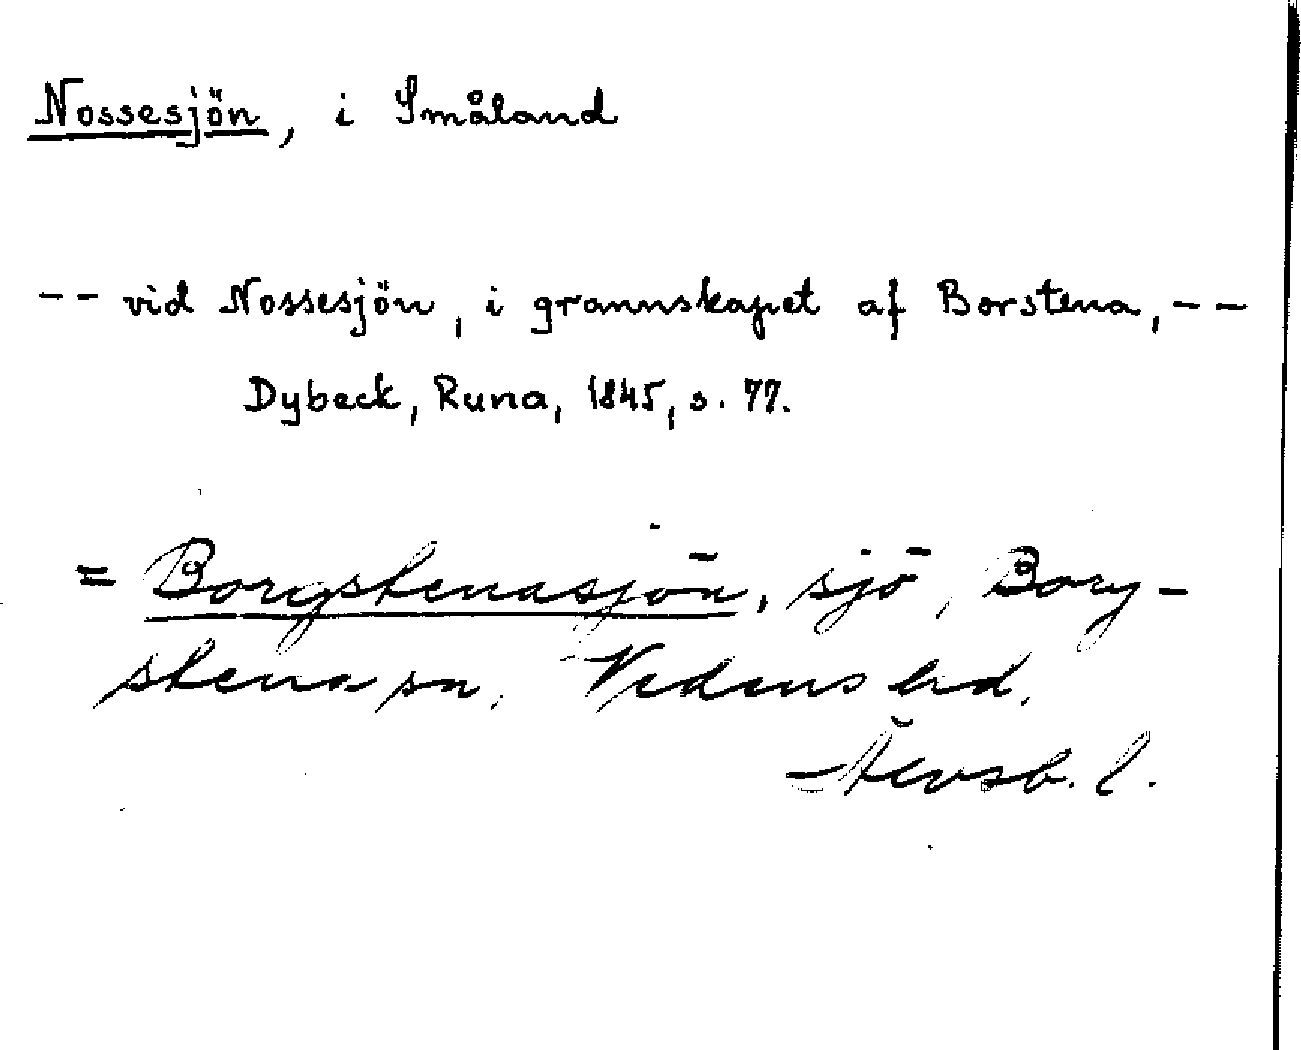 Nossesjön, i Småland
-- vid Nossesjön, i grannskapet af Borstena, --
Dybeck, Runa, 1845, s. 77.
= Borgstenasjön, sjö, Borg-
stena sn, Vedens hd,
Älvsb. l.